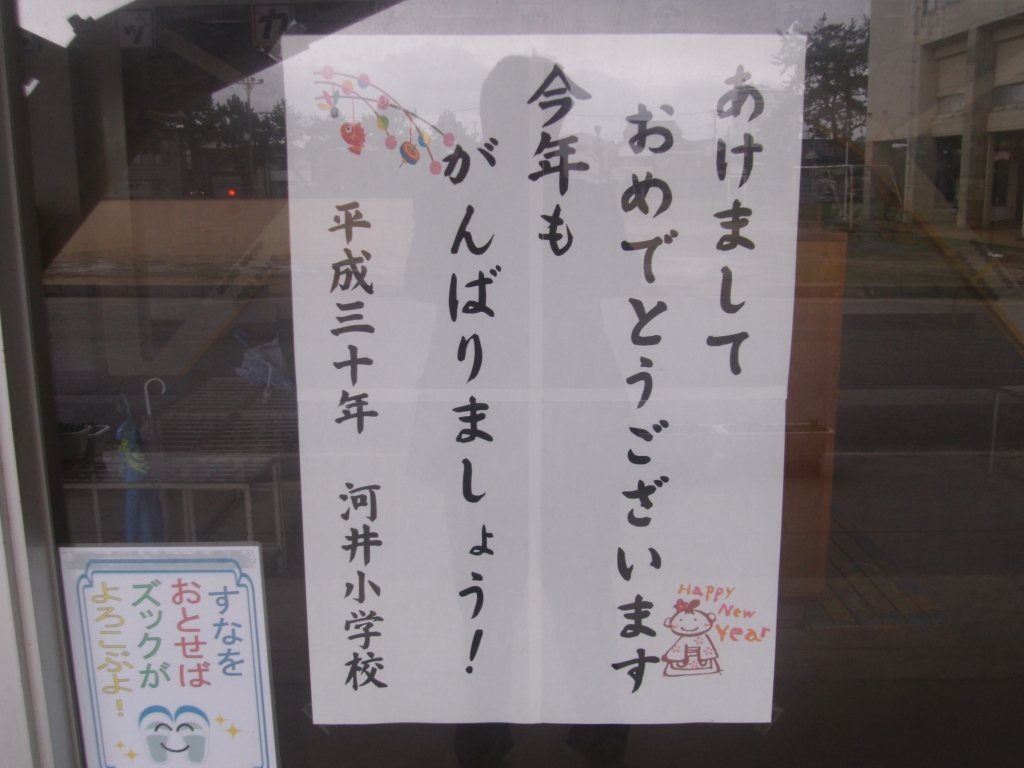 あけまして
おめでとうございます
今年も
がんばりましょう!
平成三十年 河井小学校
Happy
New
Year
すなを
おとせば
ズックが
よろこぶよ!
ッ
カ